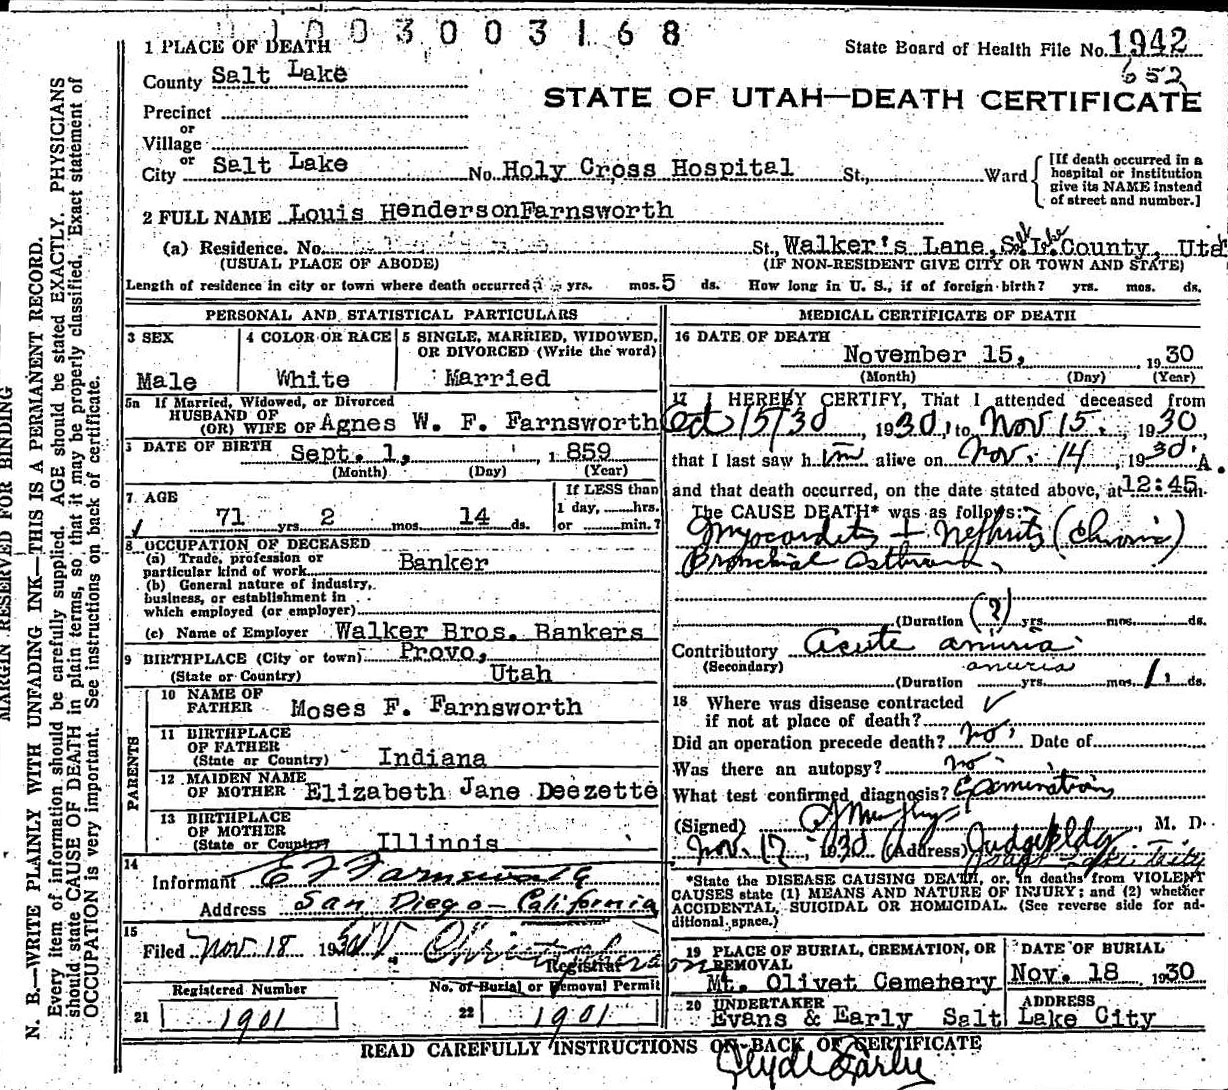 1003003168
State Board of Health File No. 1942
652
STATE OF UTAH—DEATH CERTIFICATE
1 PLACE OF DEATH
County Salt Lake
Precinct
or
Village
or
City Salt Lake No. Holy Cross Hospital St., Ward
[If death occurred in a
hospital or institution
give its NAME instead
of street and number.]
2 FULL NAME Louis HendersonFarnsworth
(a) Residence. No. St., Walker's Lane, S. L. County, Uta
Salt Lake
(USUAL PLACE OF ABODE) (IF NON-RESIDENT GIVE CITY OR TOWN AND STATE)
Length of residence in city or town where death occurred yrs. mos. 5 ds. How long in U. S., if of foreign birth? yrs. mos. ds.
PERSONAL AND STATISTICAL PARTICULARS
3 SEX
Male
4 COLOR OR RACE
White
5 SINGLE, MARRIED, WIDOWED,
OR DIVORCED (Write the word)
Married
5a If Married, Widowed, or Divorced
HUSBAND OF
(OR) WIFE OF Agnes W. F. Farnsworth
DATE OF BIRTH Sept. 1, 1859
(Month) (Day) (Year)
7 AGE
71 yrs. 2 mos. 14 ds.
If LESS than
1 day, hrs.
or min.?
8 OCCUPATION OF DECEASED
(a) Trade, profession or
particular kind of work Banker
(b) General nature of industry,
business, or establishment in
which employed (or employer)
(c) Name of Employer Walker Bros. Bankers
9 BIRTHPLACE (City or town) Provo,
(State or Country) Utah
PARENTS
10 NAME OF
FATHER Moses F. Farnsworth
11 BIRTHPLACE
OF FATHER
(State or Country) Indiana
12 MAIDEN NAME
OF MOTHER Elizabeth Jane Deezette
13 BIRTHPLACE
OF MOTHER
(State or Country) Illinois
14
Informant E J Farnsworth
Address San Diego - California
15
Filed Nov 18 1930 Christophers
Registrar
Registered Number
21 1901
No. of Burial or Removal Permit
22 1901
MEDICAL CERTIFICATE OF DEATH
16 DATE OF DEATH
November 15, 1930
(Month) (Day) (Year)
17 I HEREBY CERTIFY, That I attended deceased from
Oct 15/30, 1930, to Nov 15., 1930,
that I last saw h im alive on Nov. 14, 1930.
and that death occurred, on the date stated above, at 12:45 A.m.
The CAUSE DEATH* was as follows:
Myocarditis + Nephritis (Chronic)
Bronchial Asthma.
(Duration (?) yrs. mos. ds.
Contributory Acute anuria
(Secondary) anuria
(Duration yrs. mos. 1. ds.
18 Where was disease contracted
if not at place of death?
Did an operation precede death? no. Date of
Was there an autopsy? no.
What test confirmed diagnosis? Examination
(Signed) M. D.
Nov. 17, 1930 (Address) Judge Bldg
*State the DISEASE CAUSING DEATH, or, in deaths from VIOLENT
CAUSES state (1) MEANS AND NATURE OF INJURY; and (2) whether
ACCIDENTAL, SUICIDAL OR HOMICIDAL. (See reverse side for ad-
ditional space.)
19 PLACE OF BURIAL, CREMATION, OR
REMOVAL
Mt. Olivet Cemetery
DATE OF BURIAL
Nov. 18 1930
20 UNDERTAKER
Evans & Early Salt Lake City
ADDRESS
READ CAREFULLY INSTRUCTIONS ON BACK OF CERTIFICATE
Clyde Early
MARGIN RESERVED FOR BINDING
N. B.—WRITE PLAINLY WITH UNFADING INK—THIS IS A PERMANENT RECORD.
Every item of information should be carefully supplied. AGE should be stated EXACTLY. PHYSICIANS
should state CAUSE OF DEATH in plain terms, so that it may be properly classified. Exact statement of
OCCUPATION is very important. See instructions on back of certificate.